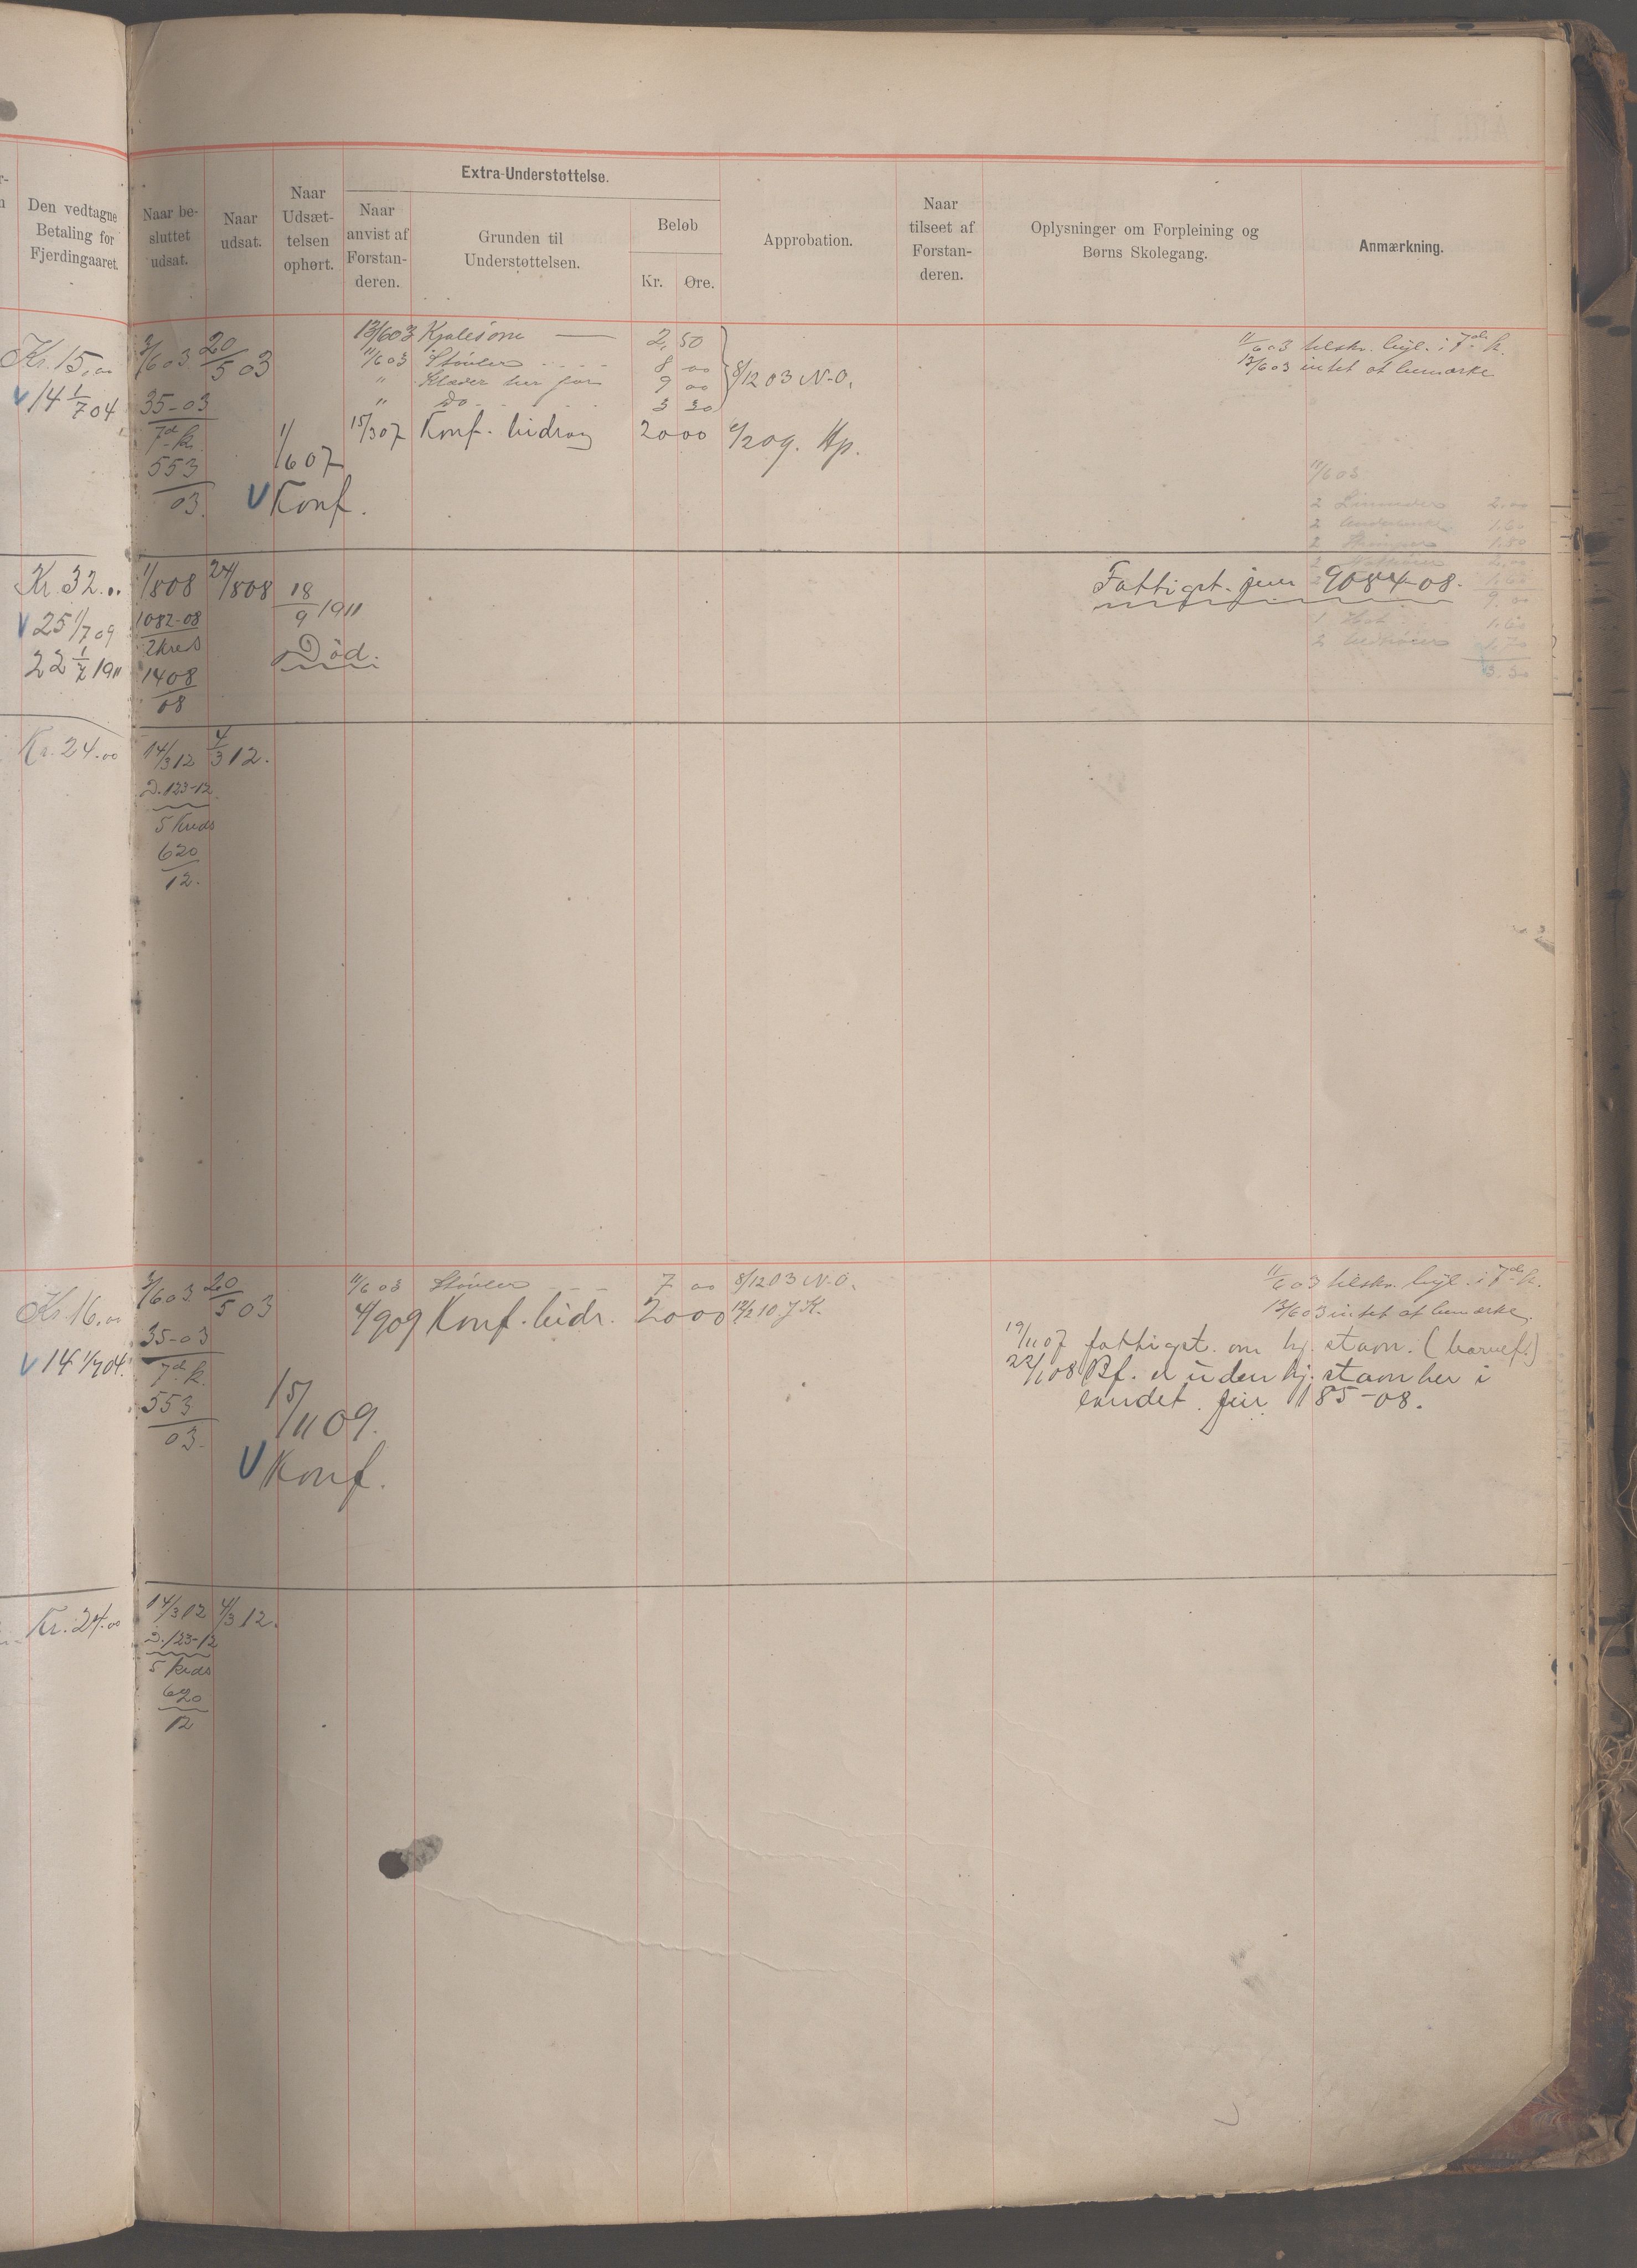 Den vedtagne
Betaling for
Fjerdingaaret.
Naar be-
sluttet
udsat.
Naar
udsat.
Naar
Udsæt-
telsen
ophørt.
Extra-Understøttelse.
Naar
anvist af
Forstan-
deren.
Grunden til
Understøttelsen.
Beløb
Kr.
Øre.
Approbation.
Naar
tilseet af
Forstan-
deren.
Oplysninger om Forpleining og
Børns Skolegang.
Anmærkning.
Kr. 15,00
V 14 1/7 04
3/6 03.
35-03
7d k.
553
03.
20/5 03
1/6 07
V Konf.
13/6 03 Kjolesøm — 2,50
11/6 03 Støvler 8 00
" Klæder 9 00
" Do 3 30
8/12 03 N-O.
15/3 07 Konf. bidrag 20 00
/2 09. Hp.
11/6 03 tilskr. i 7de k.
13/6 03 intet at bemærke
11/6 03
2 2.00
2 1.60
2 Strømper 1.50
9.00
1 1.60
2 1.70
3.30
Kr. 32.00
V 25 1/7 09
22 1/7 1911
1/8 08
1082-08
2 kreds
1408
08
24/8 08
18/9 1911
Død.
Fattigst. jnr 9084-08.
Kr. 24.00
14/3 12
D. 123-12
5 Kreds
620
12.
4/3 12.
Kr. 16,00
V 14 1/7 04.
3/6 03.
35-03
7d k.
553
03.
20/5 03
15/11 09.
V Konf.
11/6 03 Støvler 7 00 8/12 03 N-O.
4/9 09 Konf. bidr. 20 00 12/2 10 J K.
11/6 03 tilskr. i 7de k.
13/6 03 intet at bemærke.
19/11 07 fattigst. om hj. stavn. (barnef.)
22/1 08 Bf. er uden hj. stavn her i
landet. jnr 1185-08.
Kr. 24.00
14/3 12
D. 123-12
5 kreds
620
12
4/3 12.